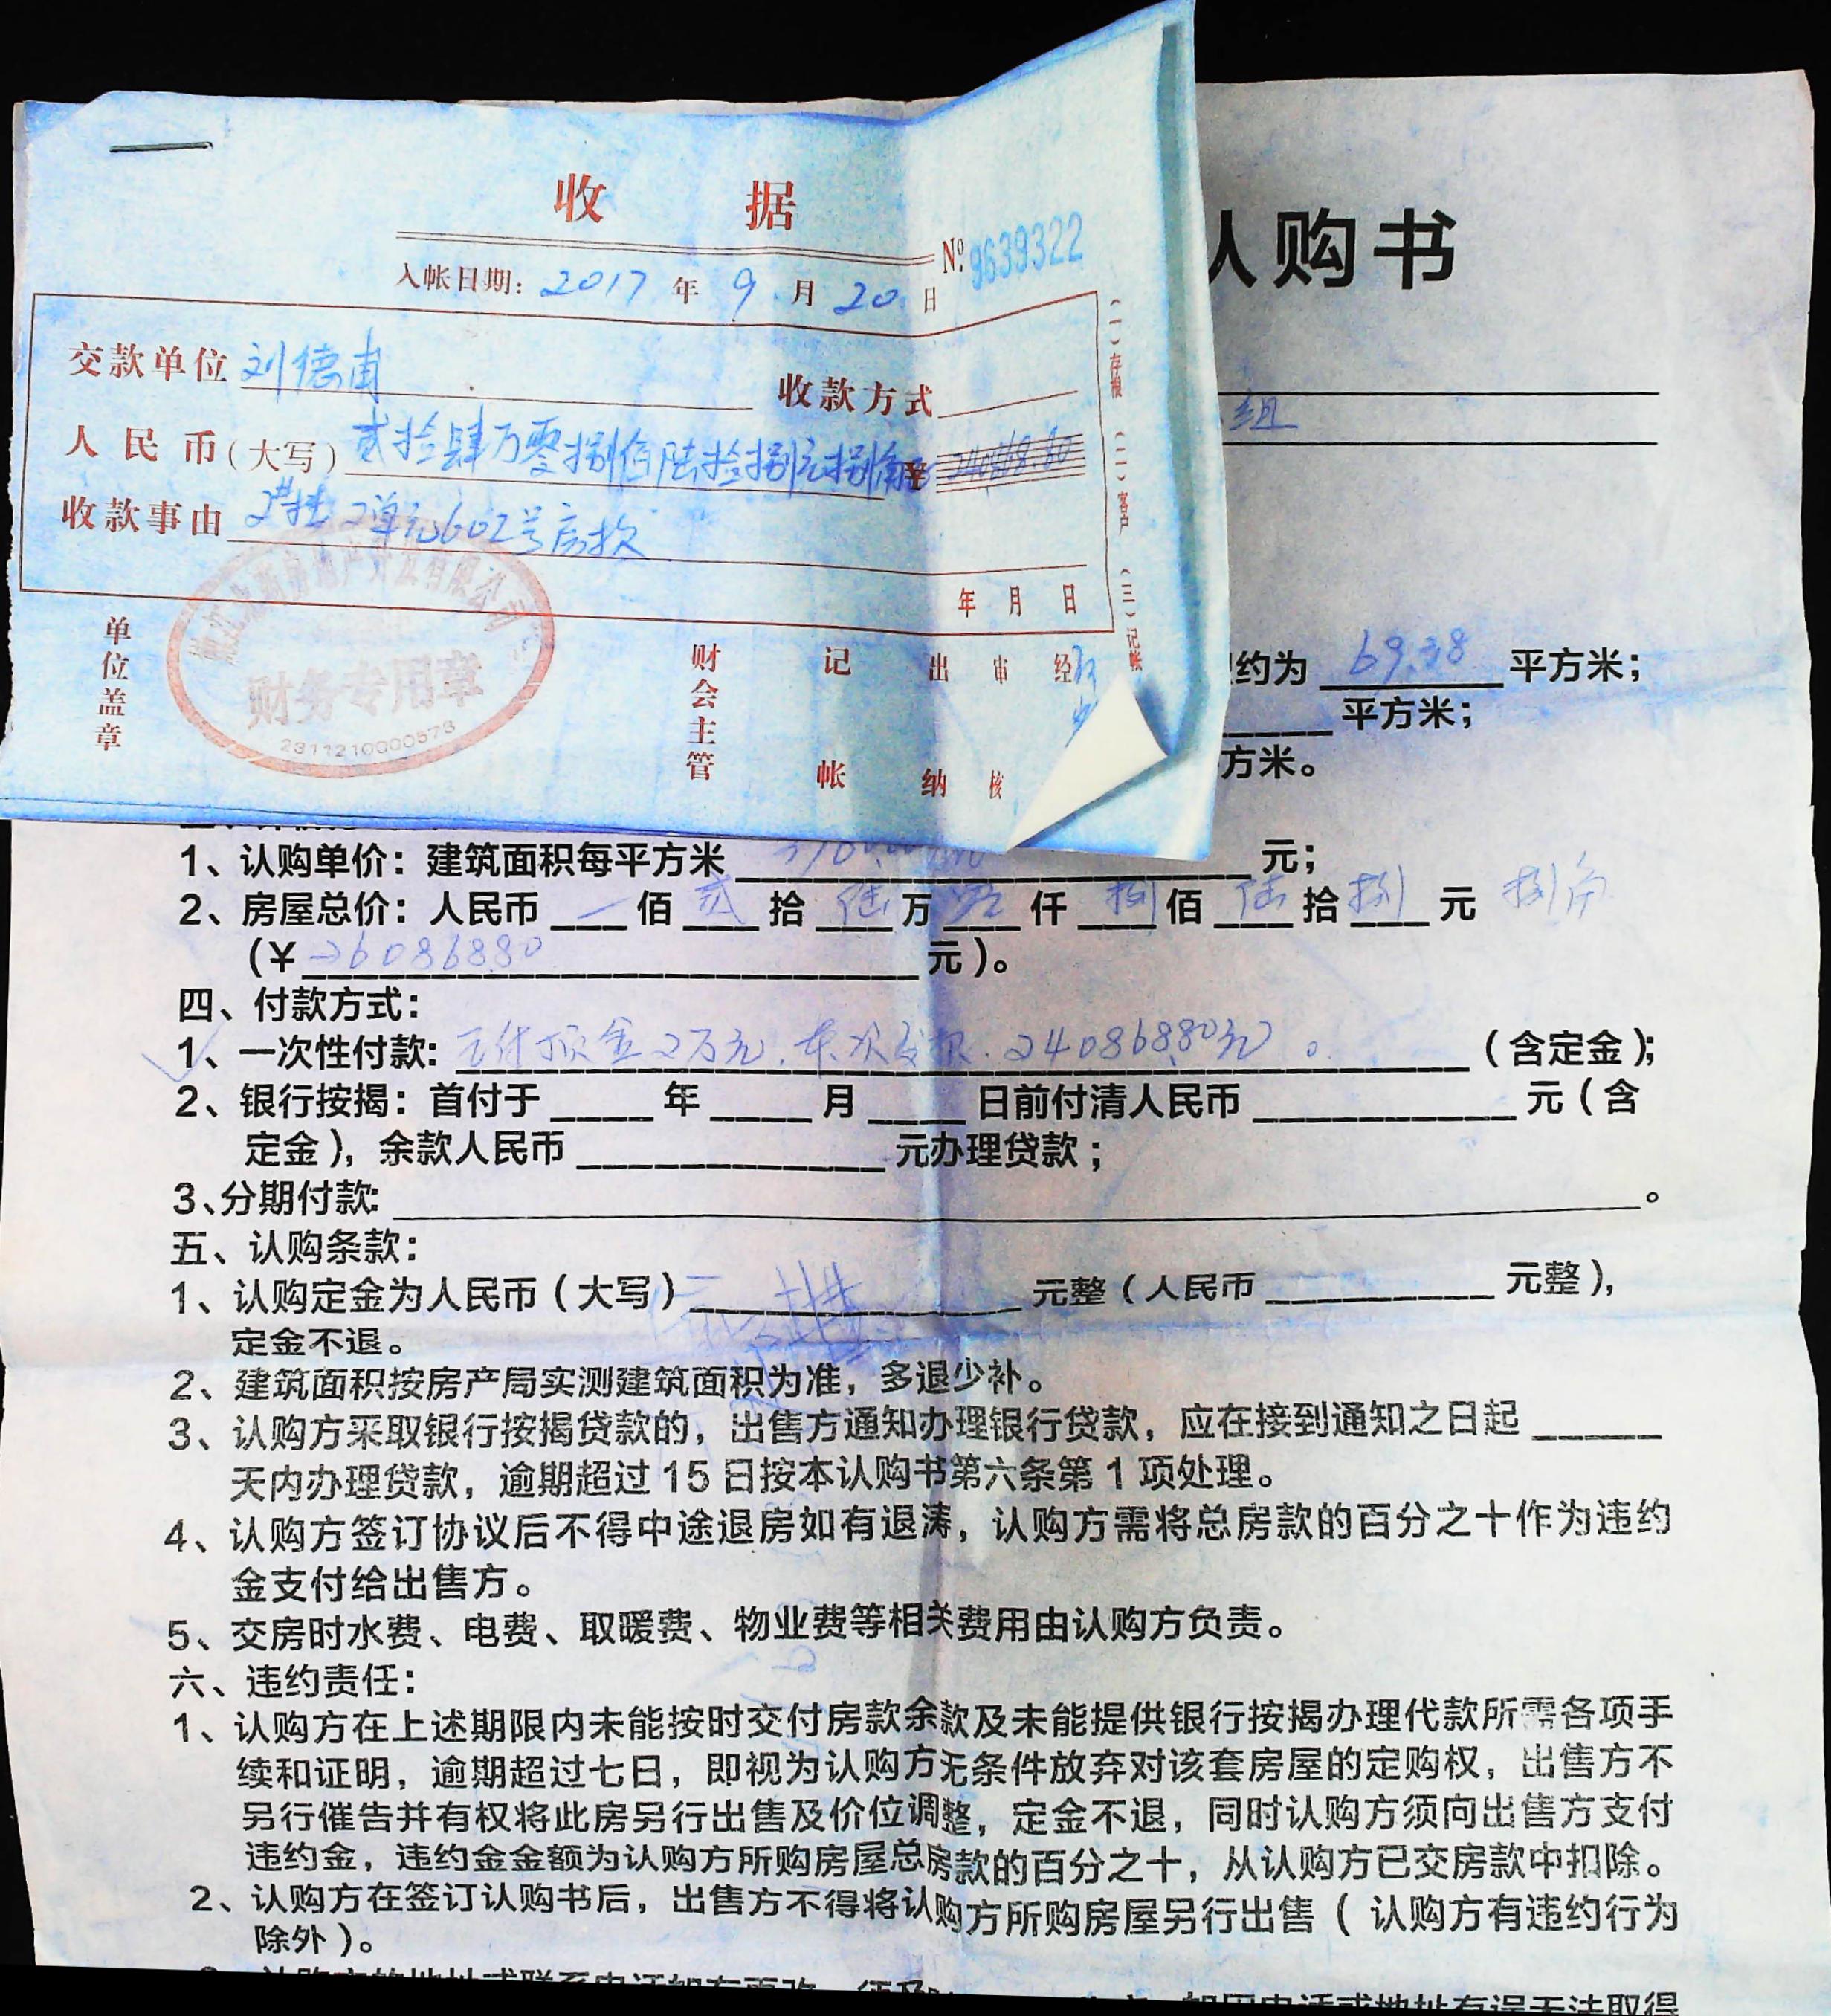 收据
№ 9639322
入帐日期：2017年9月20日
交款单位 刘德甫 收款方式
人民币（大写）贰拾肆万零捌佰陆拾捌元捌角整 240868.80
收款事由 2#楼2单元602号房款
年 月 日
（一）存根 （二）客户 （三）记帐
单位盖章 财会主管 记帐 出纳 审核 经
房地产开发有限公司
财务专用章
2311210000573
认购书
组
约为 69.38 平方米；
平方米；
方米。
1、认购单价：建筑面积每平方米 元；
2、房屋总价：人民币 佰 贰 拾 陆 万 零 仟 捌 佰 陆 拾 捌 元 捌角
（¥ 260868.80 元）。
四、付款方式：
1、一次性付款：已付预金2万元，本次交款 240868.80元。（含定金）；
2、银行按揭：首付于 年 月 日前付清人民币 元（含
定金），余款人民币 元办理贷款；
3、分期付款： 。
五、认购条款：
1、认购定金为人民币（大写） 元整（人民币 元整），
定金不退。
2、建筑面积按房产局实测建筑面积为准，多退少补。
3、认购方采取银行按揭贷款的，出售方通知办理银行贷款，应在接到通知之日起
天内办理贷款，逾期超过15日按本认购书第六条第1项处理。
4、认购方签订协议后不得中途退房如有退涛，认购方需将总房款的百分之十作为违约
金支付给出售方。
5、交房时水费、电费、取暖费、物业费等相关费用由认购方负责。
六、违约责任：
1、认购方在上述期限内未能按时交付房款余款及未能提供银行按揭办理代款所需各项手
续和证明，逾期超过七日，即视为认购方无条件放弃对该套房屋的定购权，出售方不
另行催告并有权将此房另行出售及价位调整，定金不退，同时认购方须向出售方支付
违约金，违约金金额为认购方所购房屋总房款的百分之十，从认购方已交房款中扣除。
2、认购方在签订认购书后，出售方不得将认购方所购房屋另行出售（认购方有违约行为
除外）。